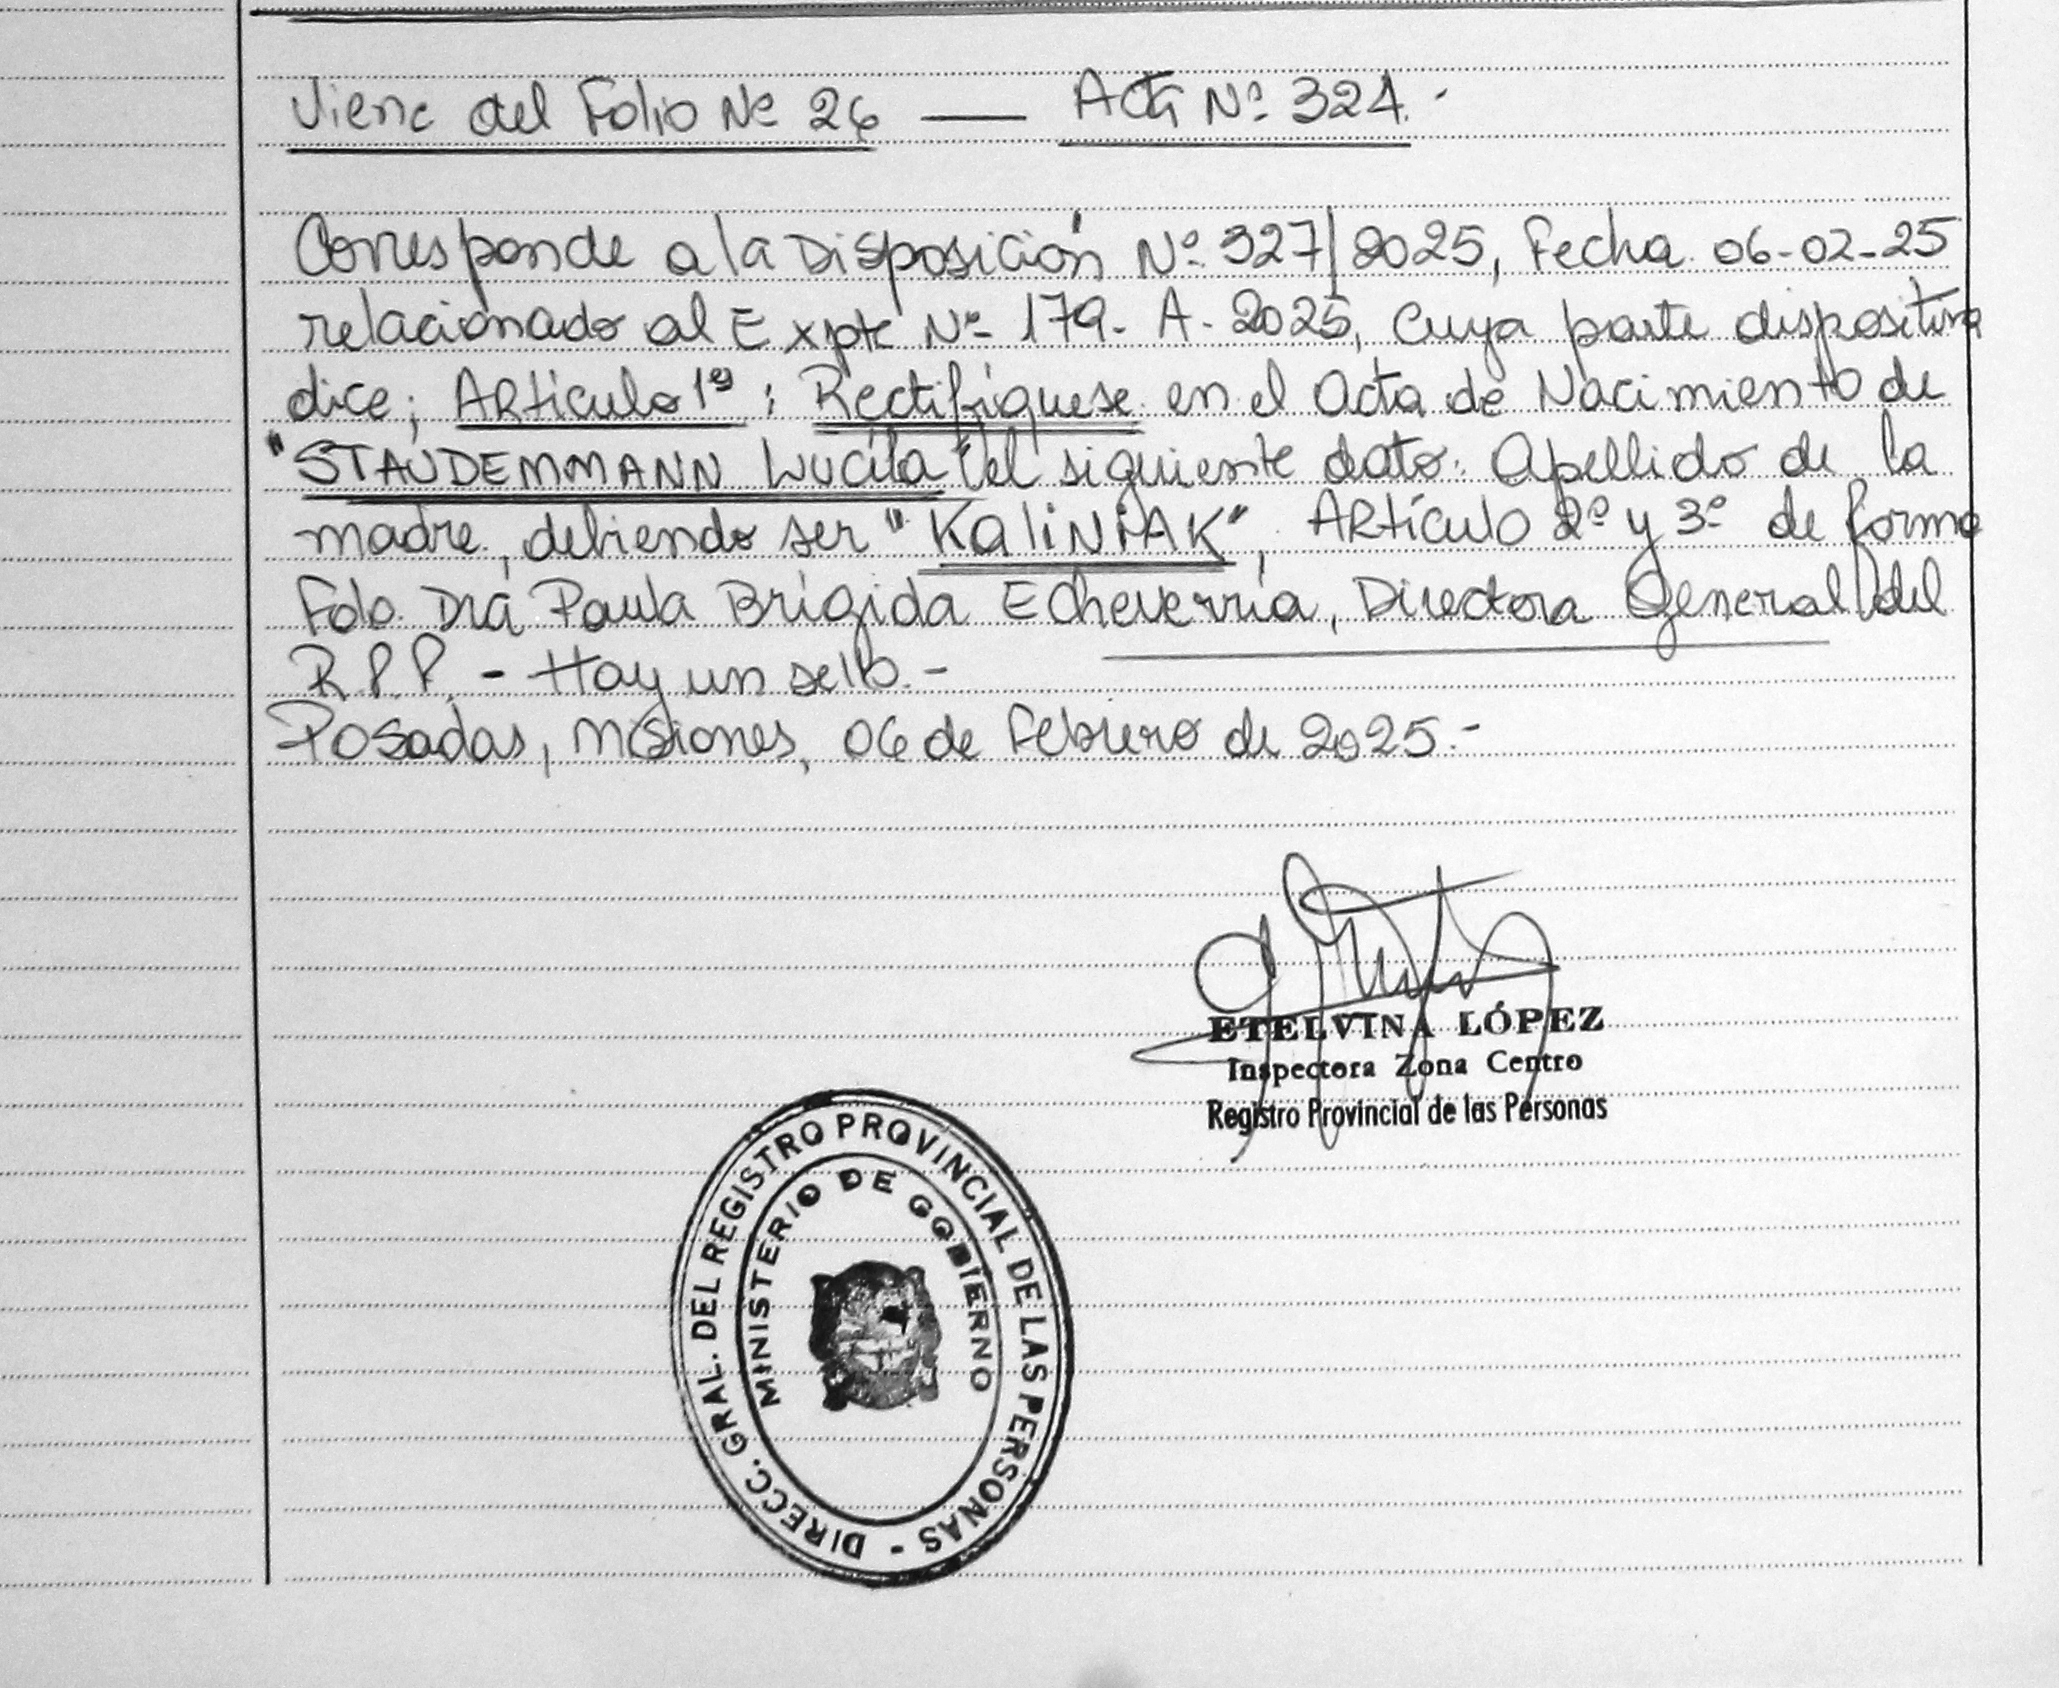 Viene del Folio Nº 26 — Acta Nº 324.-
Corresponde a la Disposición Nº 327/2025, Fecha 06-02-25
relacionado al Expte Nº 179-A-2025, Cuya parte dispositiva
dice; ARtículo 1º: Rectifíquese en el Acta de Nacimiento de
"STAUDEMMANN Lucila" el siguiente dato: Apellido de la
madre, debiendo ser "KaliNiAK", ARtículo 2º y 3º de forma
Fdo. Dra Paula Brígida Echeverría, Directora General del
R.P.P. - Hay un sello.-
Posadas, Misiones, 06 de Febrero de 2025.-
ETELVINA LÓPEZ
Inspectora Zona Centro
Registro Provincial de las Personas
DIRECC. GRAL. DEL REGISTRO PROVINCIAL DE LAS PERSONAS -
MINISTERIO DE GOBIERNO